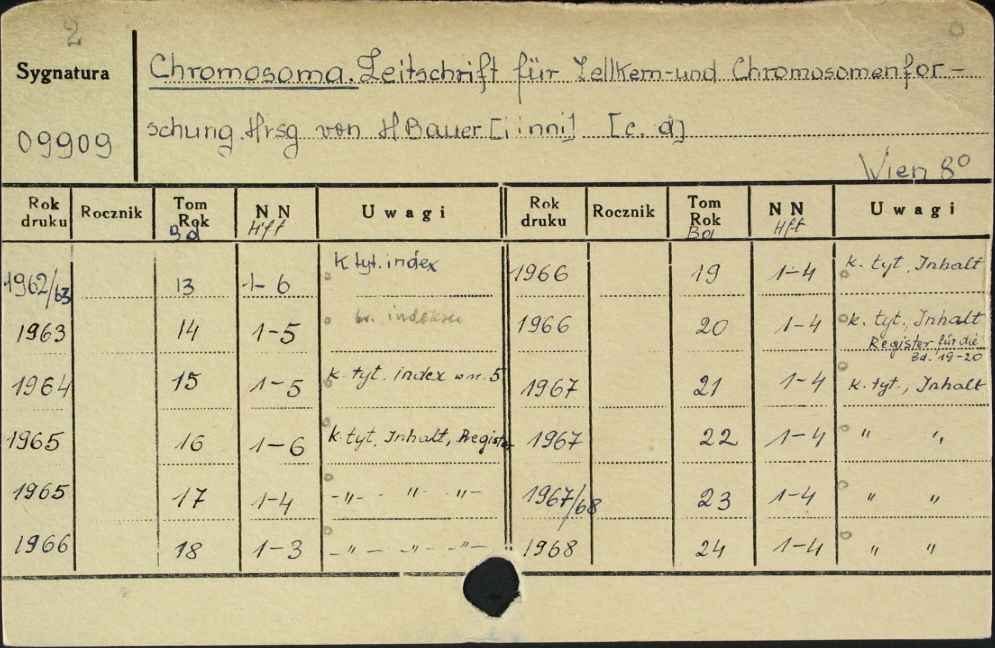 2
Sygnatura
09909
Chromosoma. Zeitschrift für Zellkern-und Chromosomenfor-
schung. Hrsg von H Bauer [i inni] [c. d]
Wien 8°
Rok druku Rocznik Tom Rok Bd NN Hft Uwagi Rok druku Rocznik Tom Rok Bd NN Hft Uwagi
1962/63 13 1-6 K tyt. index 1966 19 1-4 k. tyt, Inhalt
1963 14 1-5 br. indeksu 1966 20 1-4 k. tyt., Inhalt
Register für die
Bd. 19-20
1964 15 1-5 k. tyt. index w nr. 5 1967 21 1-4 k. tyt., Inhalt
1965 16 1-6 k. tyt. Inhalt, Register 1967 22 1-4 " "
1965 17 1-4 -"- -"- -"- 1967/68 23 1-4 " "
1966 18 1-3 -"- -"- -"- 1968 24 1-4 " "